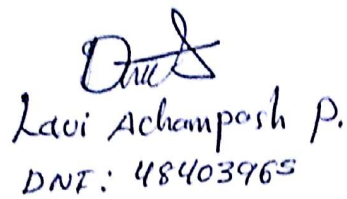 Lavi Achampash P.
DNI: 48403965